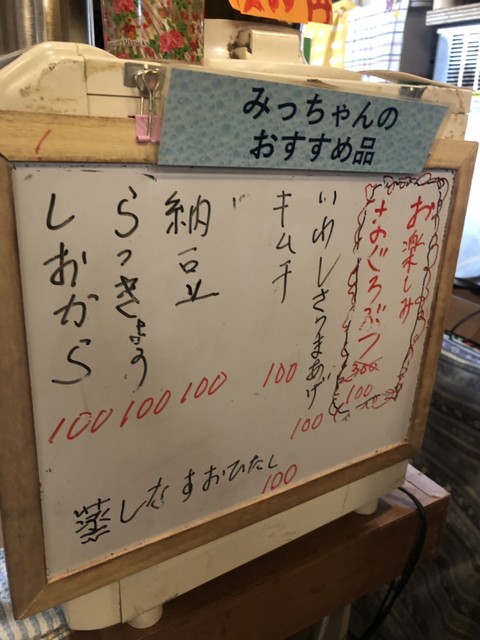 みっちゃんの
おすすめ品
お楽しみ
まぐろぶつ
300
100
いわしさつまあげ
100
キムチ
100
納豆
100
らっきょう
100
しおから
100
蒸しなすおひたし
100